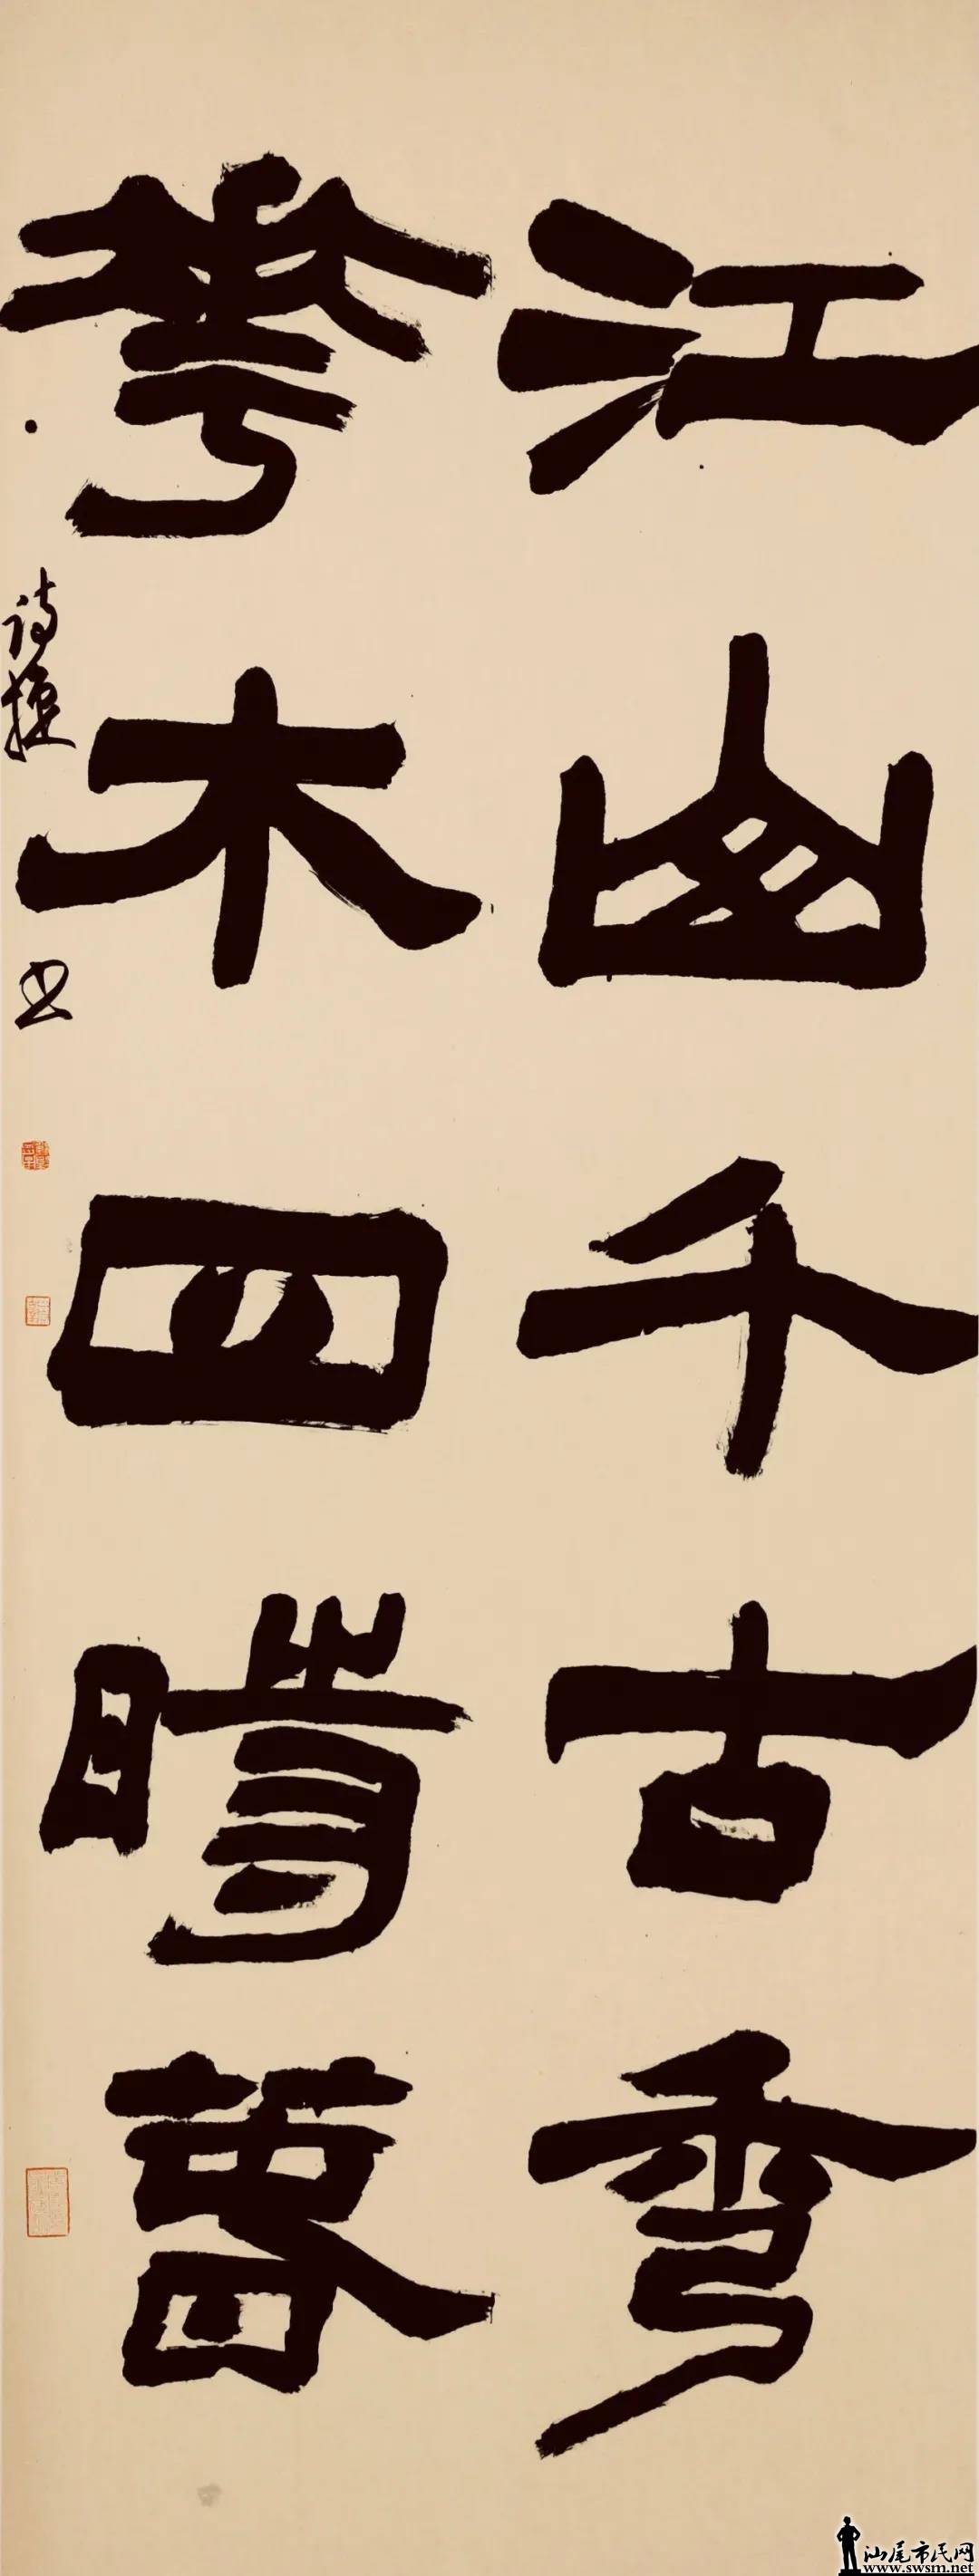 江山千古秀
華木四時春
诗捷书
汕尾市民网
www.swsm.net